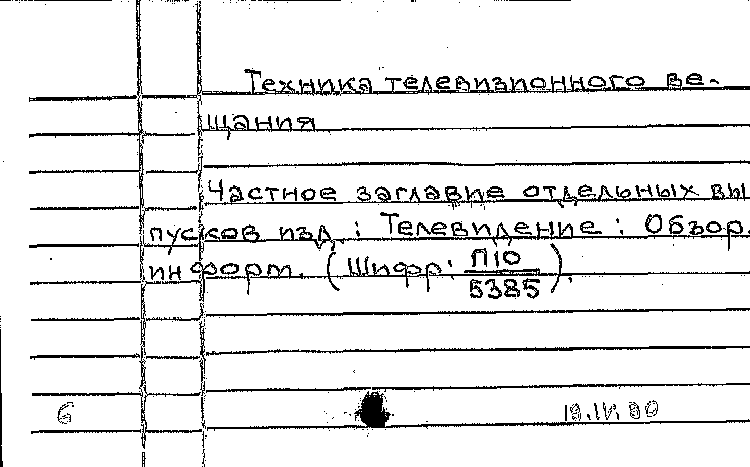 Техника телевизионного ве-
щания
Частное заглавие отдельных вы
пусков изд.: Телевидение: Обзор.
информ. (Шифр: П10/5385).
6